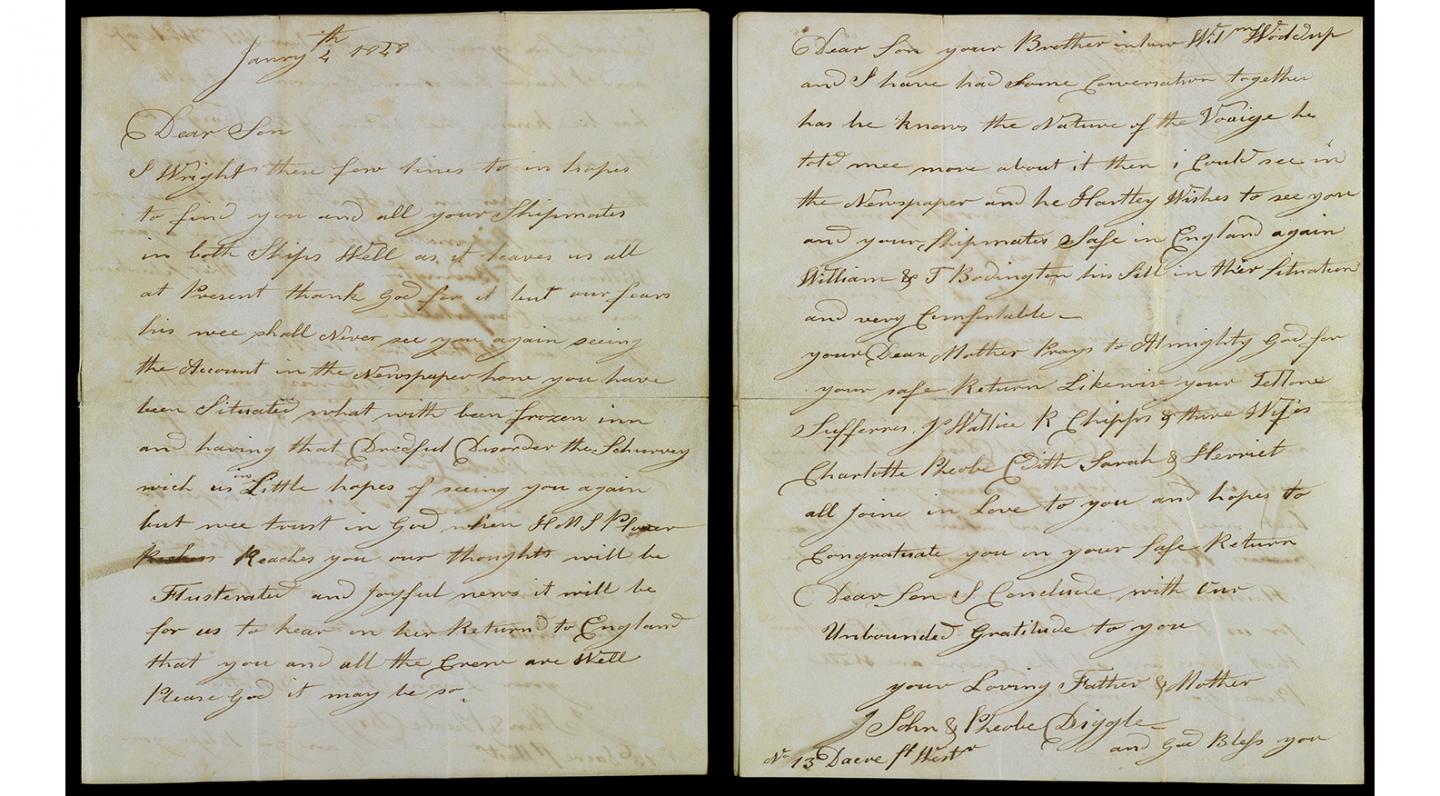 Janry 4th 1848
Dear Son
I Wright these few lines to in hopes
to find you and all your Shipmates
in both Ships Well as it leaves us all
at Present thank God for it but our fears
his wee shall Never see you again seeing
the Account in the Newspaper how you have
been Situated what with been frozen inn
and having that Dredful Disorder the Schurvey
wich us in Little hopes of seeing you again
but wee trust in God when HMS Plover
Reaches you our thoughts will be
Flusterated and Joyful news it will be
for us to hear on her Return to England
that you and all the Crew are Well
Please God it may be so
Dear Son your Brother inlaw Wm Woddup
and I have had Some Conversation together
has he knows the Nature of the Voaige he
told mee more about it then i Could see in
the Newspaper and he Hartley Wishes to see you
and your Shipmates Safe in England again
William & T Bodington his Sill in thier Situation
and very Comfortable
your Dear Mother Prays to Almighty God for
your safe Return Likewise your Fellow
Sufferres Js Wallice R Chipps & thire Wifes
Charlotte Pheobe Edith Sarah & Herriet
all Joine in Love to you and hopes to
Congratuate you on your Safe Return
Dear Son I Conclude with Our
Unbounded Gratitude to you
your Loving Father & Mother
John & Pheobe Diggle
and God Bless you
No 13 Dacre St Westr